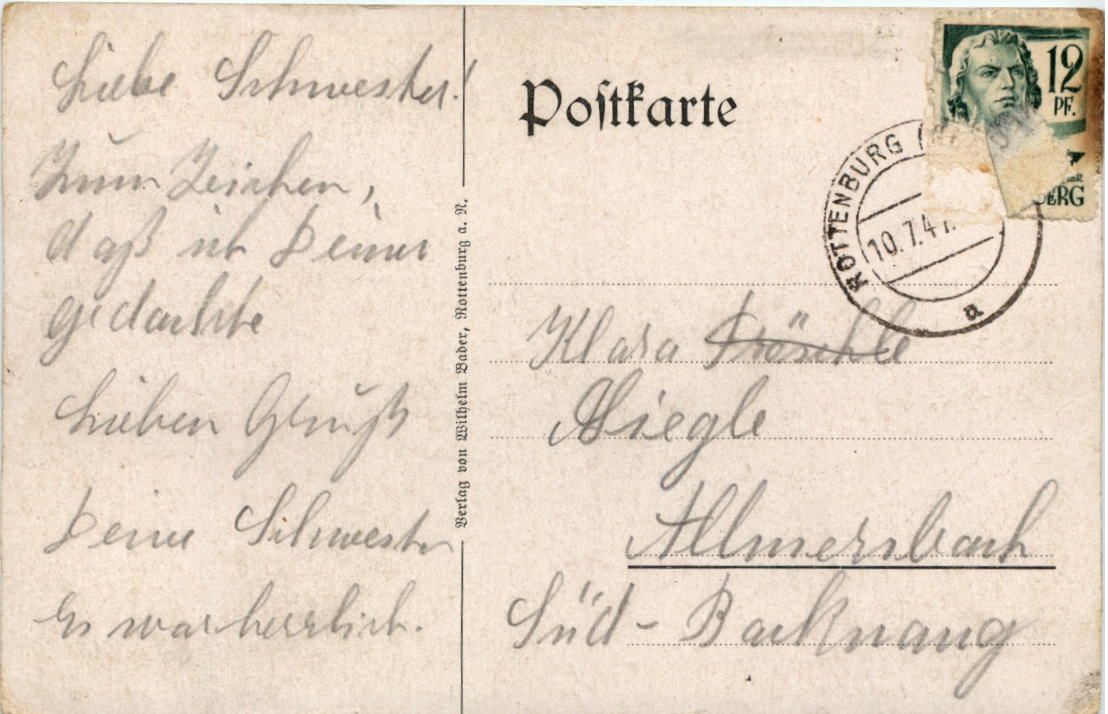 Liebe Schwester!
Zum Zeichen,
daß ich Deiner
gedachte
Lieben Gruß
Deine Schwester
Es war herrlich.
Verlag von Wilhelm Bader, Rottenburg a. N.
Poſtkarte
12
PF.
BERG
ROTTENBURG
10.7.47.
a
Klara
Siegle
Allmersbach
Süd - Backnang